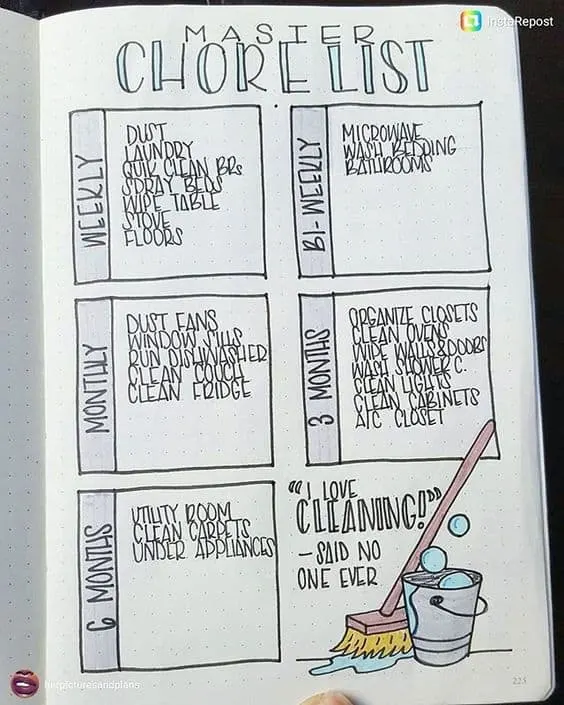 InstaRepost
MASTER
CHORE LIST
WEEKLY
DUST
LAUNDRY
QUIK CLEAN BRs
SPRAY BEDS
WIPE TABLE
STOVE
FLOORS
BI-WEEKLY
MICROWAVE
WASH BEDDING
BATHROOMS
MONTHLY
DUST FANS
WINDOW SILLS
RUN DISHWASHER
CLEAN COUCH
CLEAN FRIDGE
3 MONTHS
ORGANIZE CLOSETS
CLEAN OVENS
WIPE WALLS&DOORS
WASH SHOWER C.
CLEAN LIGHTS
CLEAN CABINETS
A/C CLOSET
6 MONTHS
UTILITY ROOM
CLEAN CARPETS
UNDER APPLIANCES
"I LOVE
CLEANING!"
– SAID NO
ONE EVER
225
herpicturesandplans